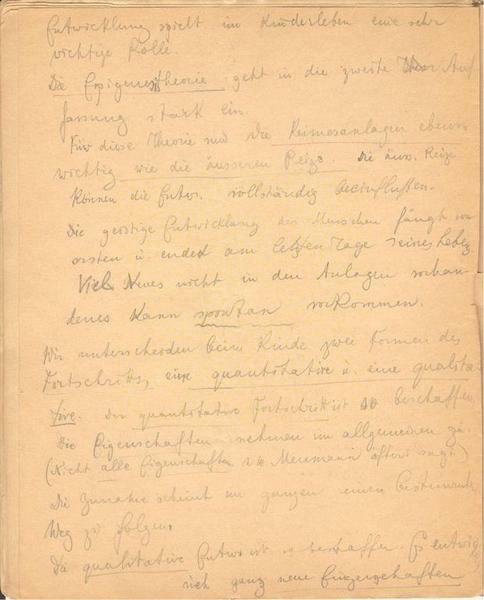 Entwicklung spielt im Kinderleben eine sehr
wichtige Rolle.
Die Epigenesistheorie geht in die zweite Auf
fassung stark ein.
Für diese Theorie sind die Keimesanlagen ebenso
wichtig wie die äusseren Reize. Die äuss. Reize
können die Entw. vollständig beeinflußen.
Die geistige Entwicklung des Menschen fängt vom
ersten u. endet am letzten Tage seines Lebens
Viel Neues nicht in den Anlagen vorhan
denes kann spontan vorkommen.
Wir unterscheiden beim Kinde zwei Formen des
Fortschritts, eine quantitative u. eine qualita
tive. Der quantitative Fortschritt ist so beschaffen
Die Eigenschaften nehmen im allgemeinen zu.
(Nicht alle Eigenschaften wie Meumann öfters sagt.)
Die Zunahme scheint im ganzen einen bestimmten
Weg zu folgen.
Die qualitative Entw. ist so beschaffen. Es entwi
sich ganz neue Eigenschaften